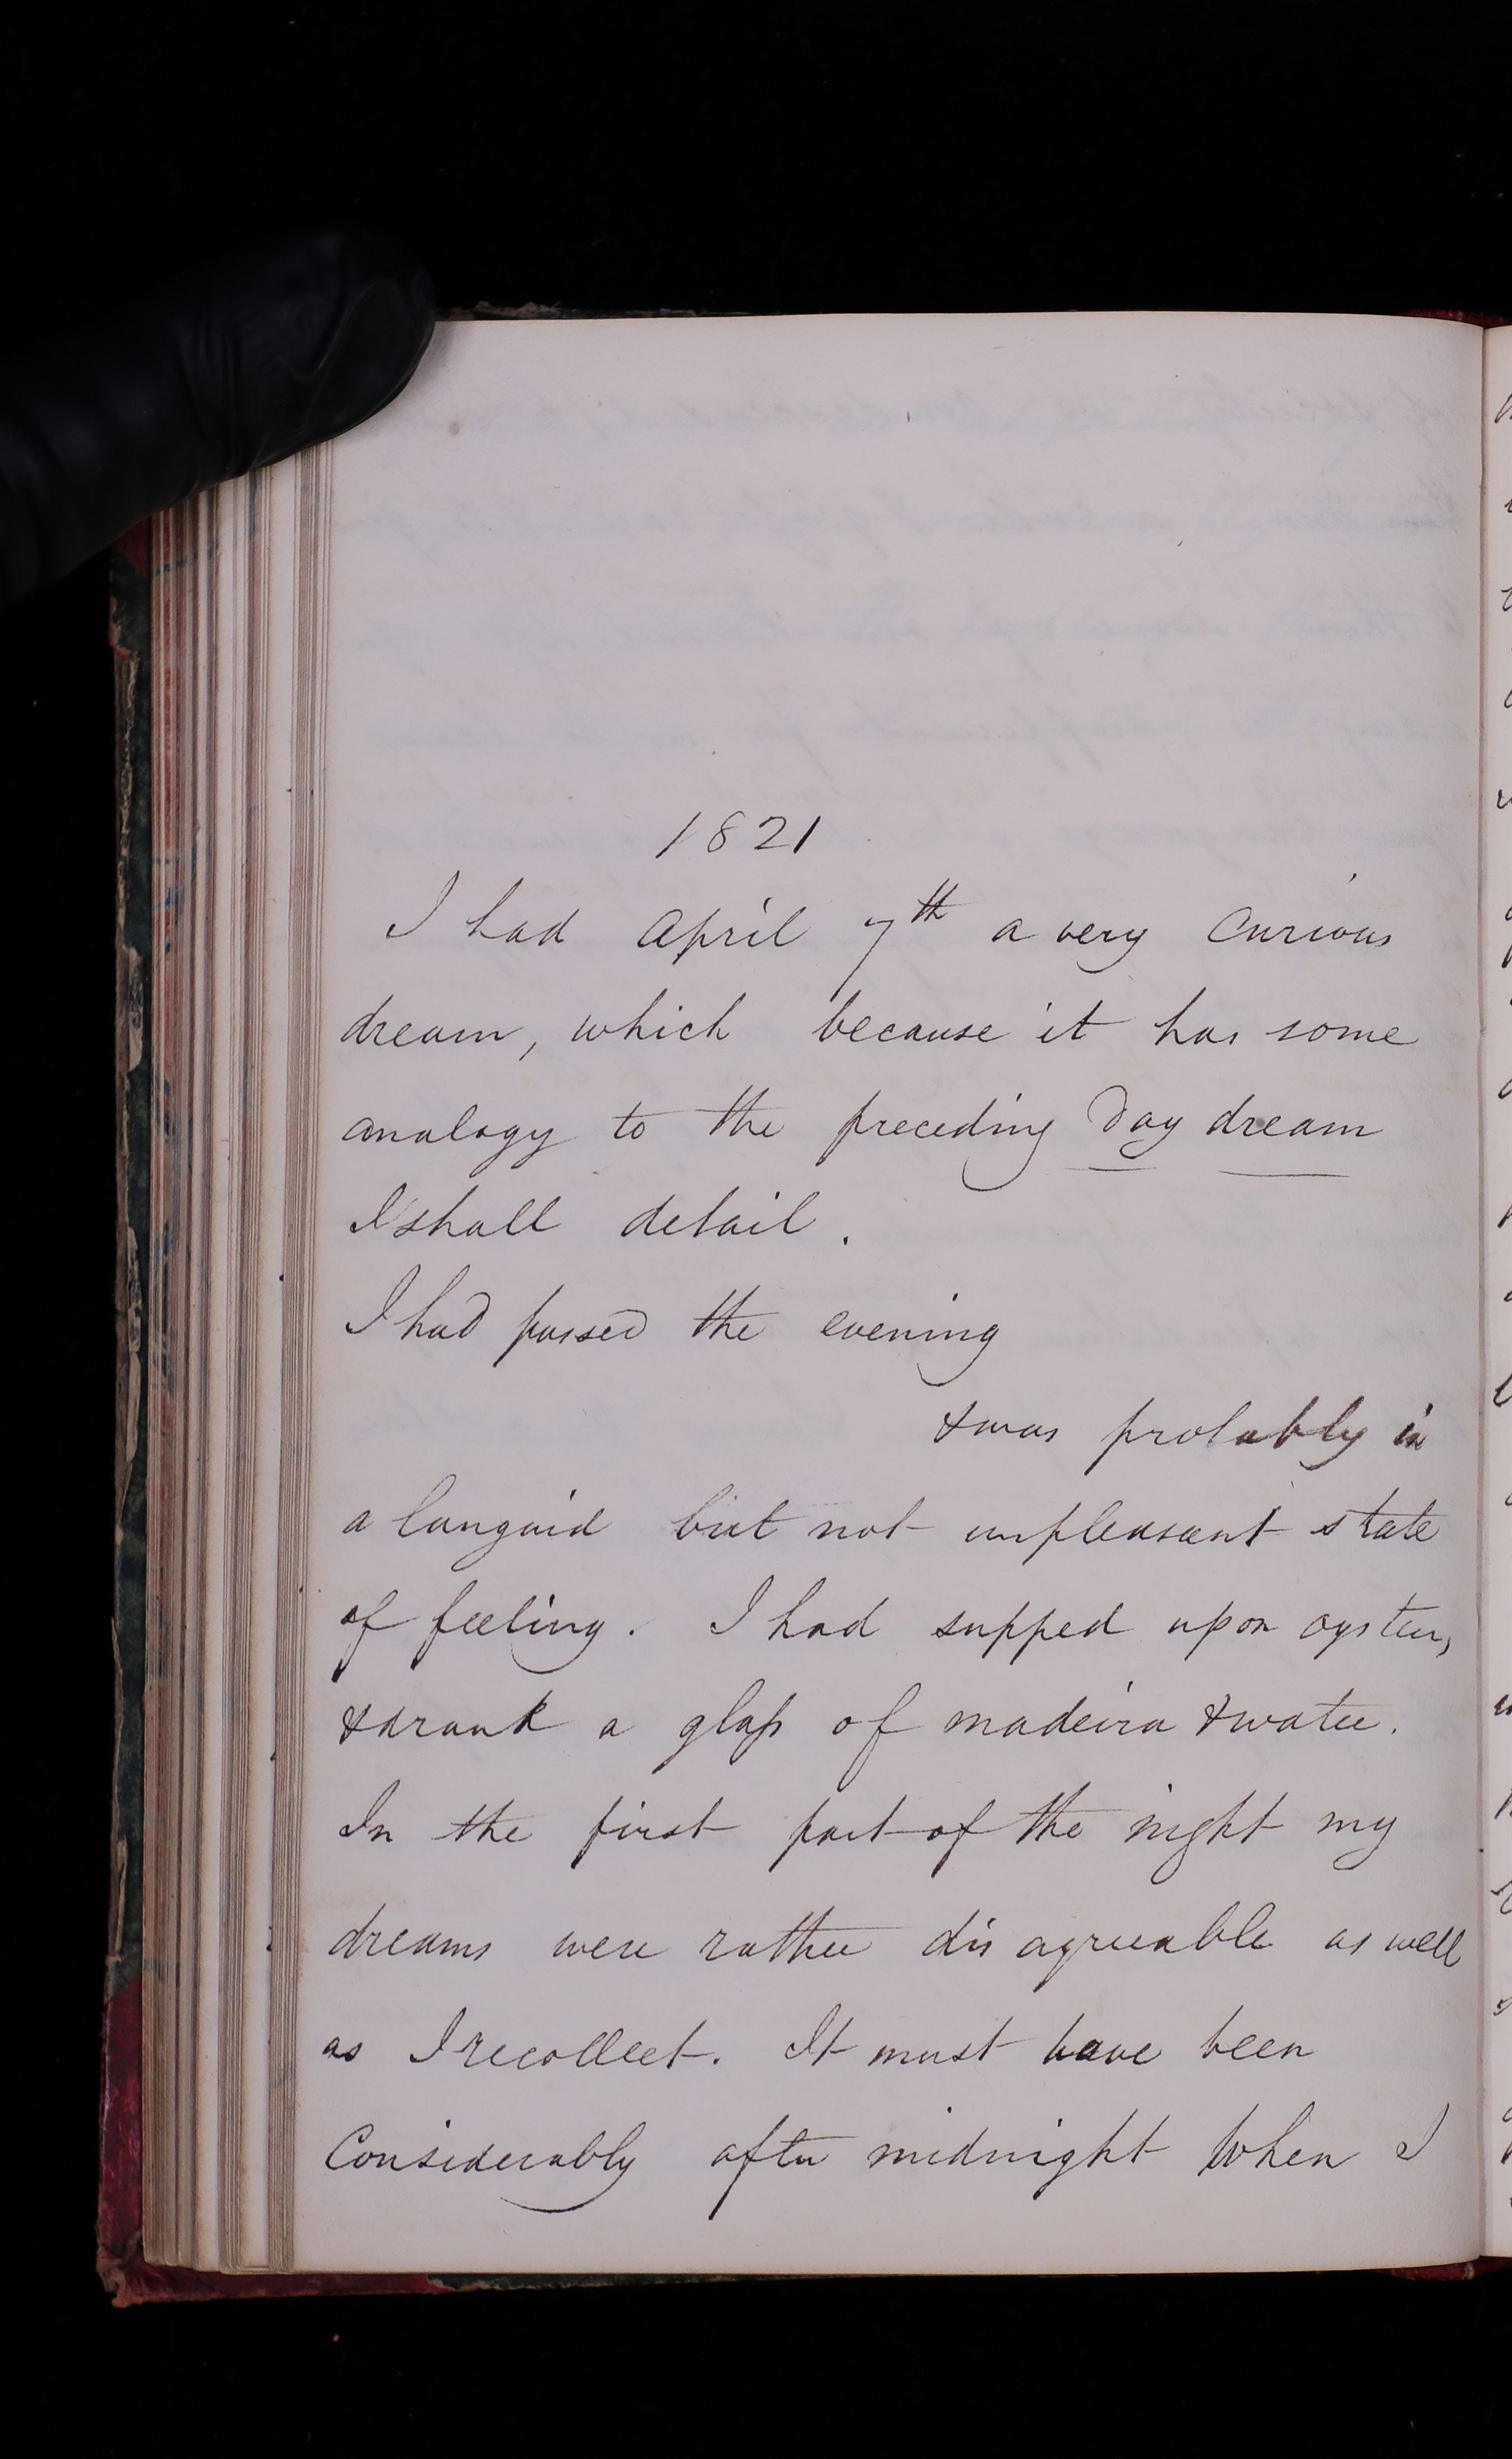 1821
I had April 7th a very Curious
dream, which because it has some
analogy to the preceding Day dream
I shall detail.
I had passed the evening
& was probably in
a languid but not unpleasant state
of feeling. I had supped upon oysters,
& drank a glass of madeira & water.
In the first part of the night my
dreams were rather disagreeable as well
as I recollect. It must have been
Considerably after midnight When I